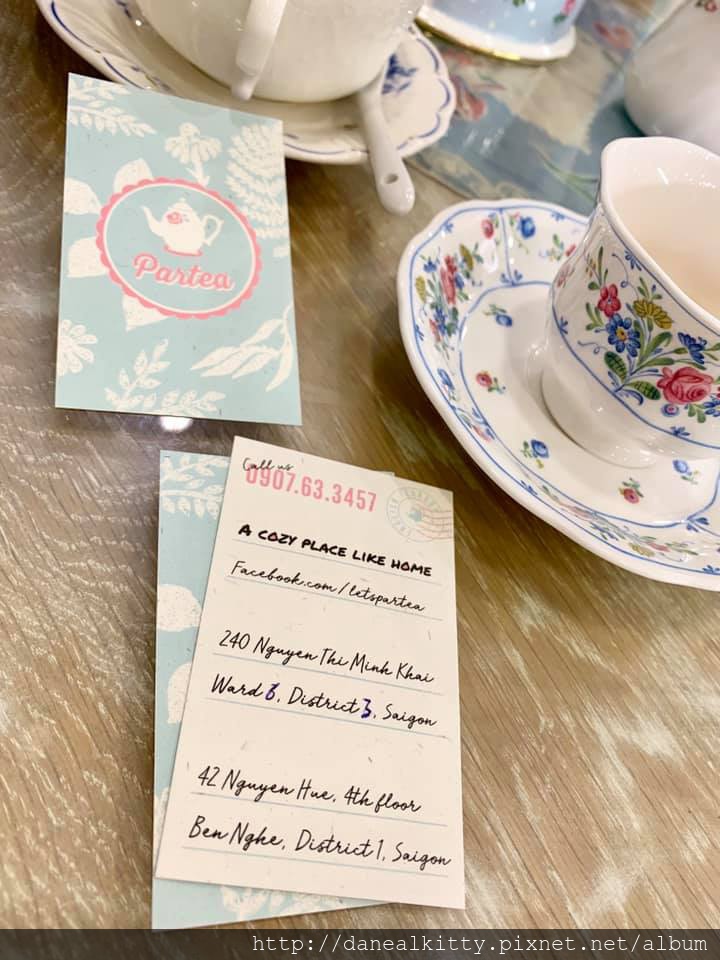 Partea
Call us
0907.63.3457
A COZY PLACE LIKE HOME
Facebook.com/letspartea
240 Nguyen Thi Minh Khai
Ward 6, District 3, Saigon
42 Nguyen Hue, 4th floor
Ben Nghe, District 1, Saigon
http://danealkitty.pixnet.net/album